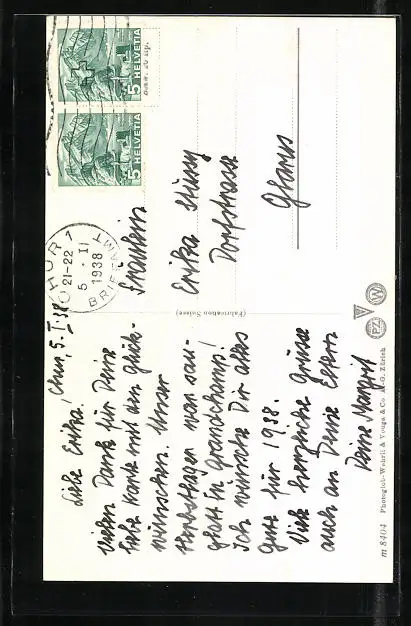 Chur, 5. I. 38
Liebe Erika!
Vielen Dank für Deine
liebe Karte mit den Glück-
wünschen. Unser
war sau-
glatt in Grandchamp!
Ich wünsche Dir alles
gute für 1938.
Viele herzliche Grüsse
auch an Deine Eltern
Deine Margrit
m 8404 Photoglob-Wehrli & Vouga & Co. A.-G. Zürich
(Fabrication Suisse)
PZ
V
W
CHUR 1
21-22
5. II
1938
BRIEFAMT
5 HELVETIA
5 HELVETIA
Fräulein
Erika Stüssy
Dorfstrasse
Glarus